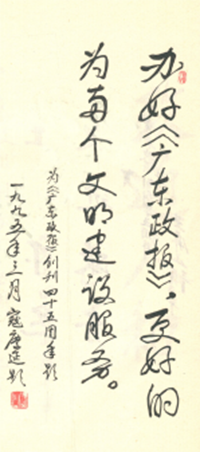 办好《广东政报》，更好的
为两个文明建设服务。
为《广东政报》创刊四十五周年题
一九九五年三月 寇庆延题